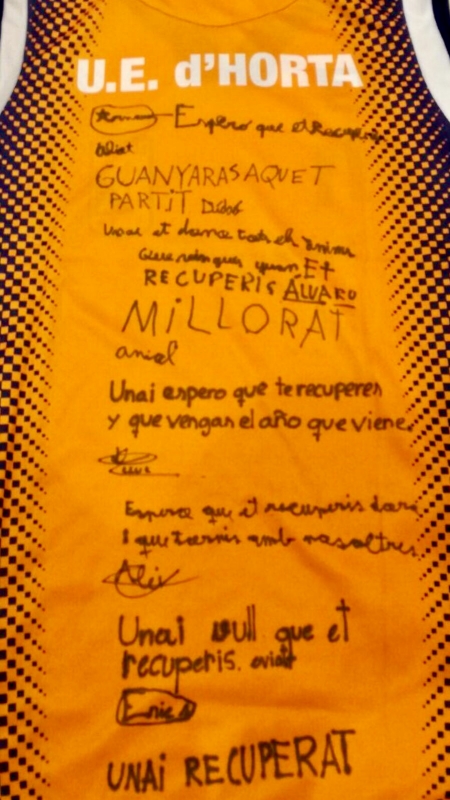 U.E. d'HORTA
Espero que et Recuperis
aviat
GUANYARAS AQUET
PARTIT Dídac
Unai et donem tots els ànims
quan Et
RECUPERIS ÁLVARO
MiLLORAT
aniol
Unai espero que te recuperes
y que vengas el año que viene.
Esperce que et recuperis
I que tornis amb nosaltres.
Aleix
Unai vull que et
recuperis. aviat
Enric
UNAi RECUPERAT